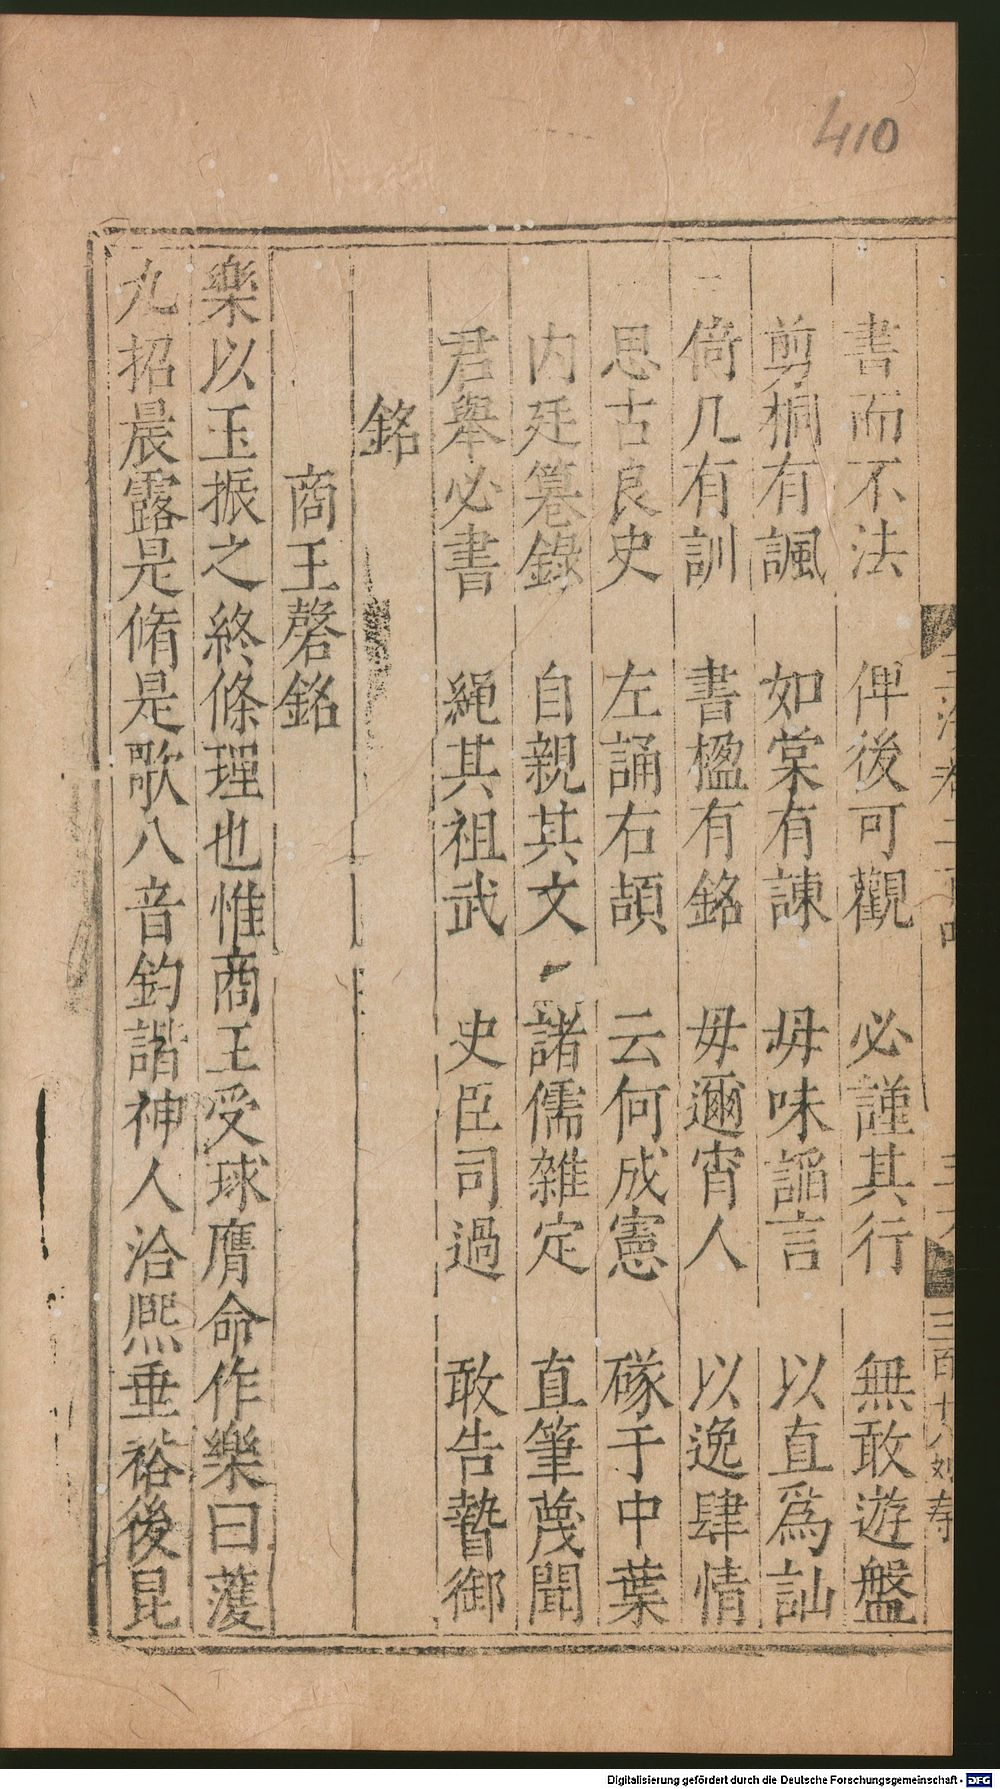 410
書而不法 俾後可觀 必謹其行 無敢遊盤
剪桐有諷 如棠有諫 毋味謟言 以直爲訕
倚几有訓 書楹有銘 毋邇宵人 以逸肆情
思古良史 左誦右頡 云何成憲 隊于中葉
内廷篹錄 自親其文 諸儒雜定 直筆蔑聞
君舉必書 繩其祖武 史臣司過 敢告暬御
銘
商王磬銘
樂以玉振之終條理也惟商王受球膺命作樂曰濩
九招晨露是脩是歌八音鈞諧神人洽熙垂裕後昆
Digitalisierung gefördert durch die Deutsche Forschungsgemeinschaft - DFG